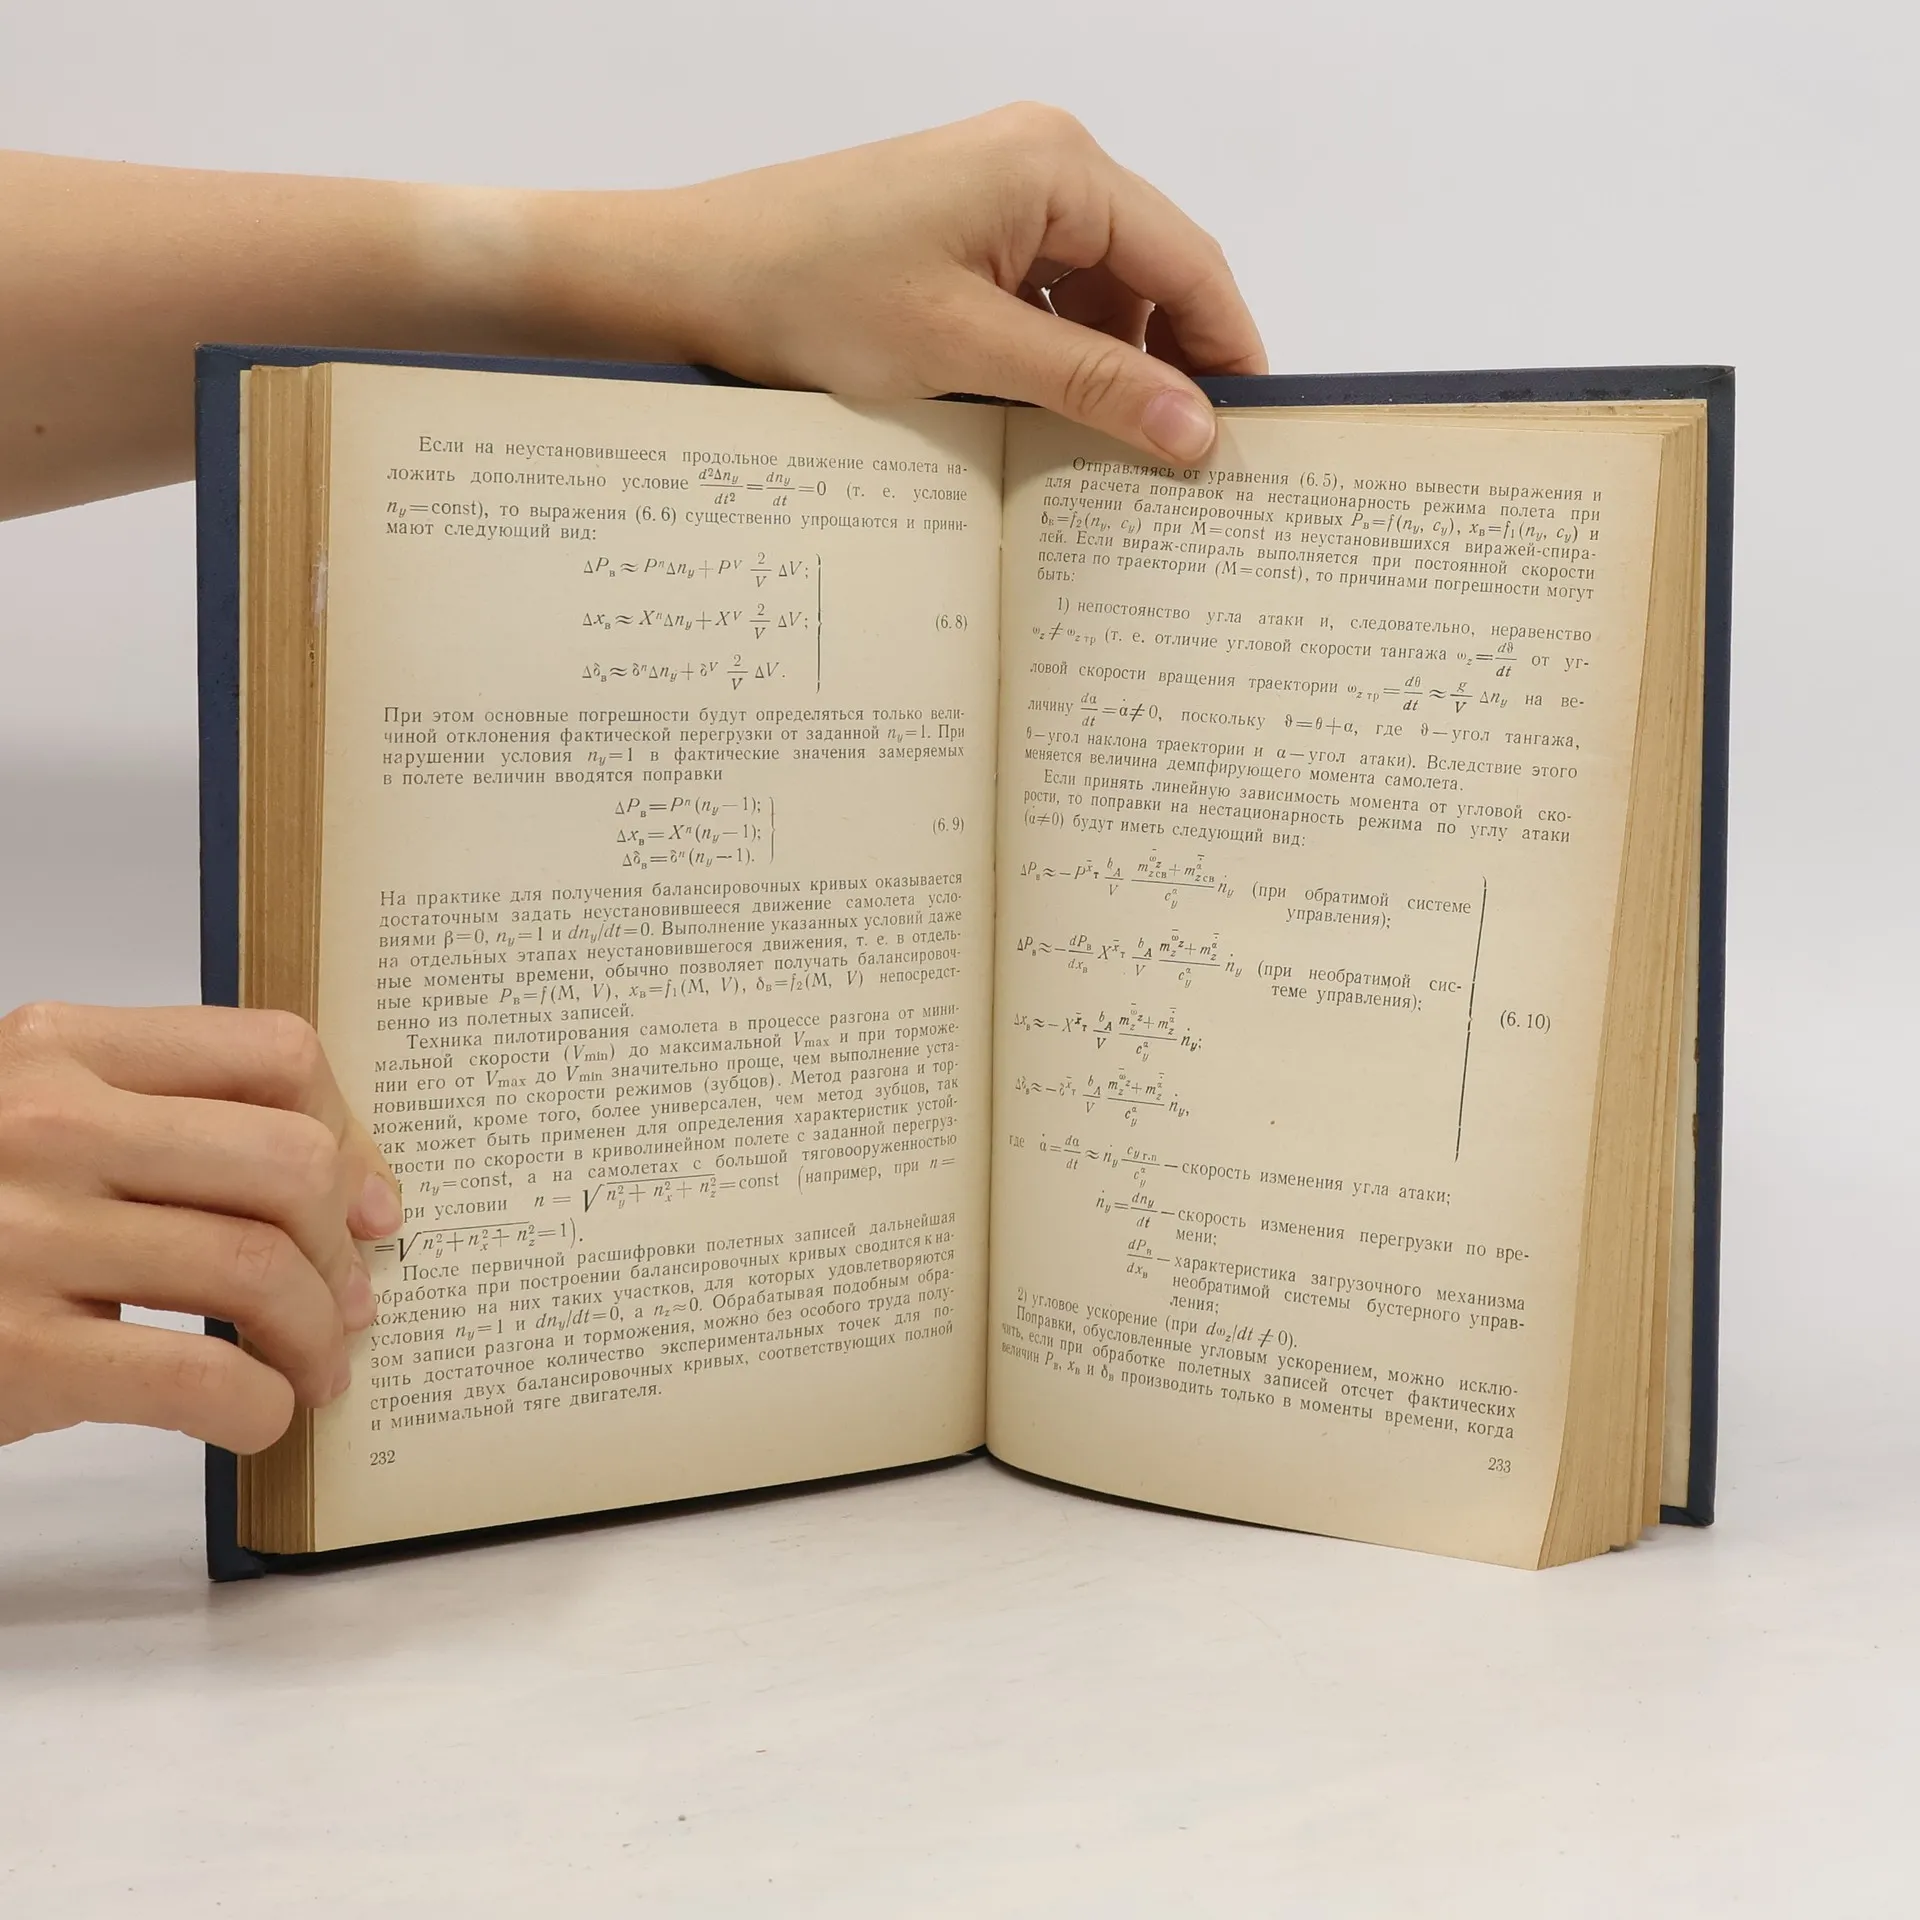 Если на неустановившееся продольное движение самолета на-
ложить дополнительно условие d²Δn_y/dt² = dn_y/dt = 0 (т. е. условие
n_y=const), то выражения (6.6) существенно упрощаются и прини-
мают следующий вид:
ΔP_в ≈ PⁿΔn_y + P^V 2/V ΔV;
Δx_в ≈ XⁿΔn_y + X^V 2/V ΔV;
(6.8)
Δδ_в ≈ δⁿΔn_y + δ^V 2/V ΔV.
При этом основные погрешности будут определяться только вели-
чиной отклонения фактической перегрузки от заданной n_y=1. При
нарушении условия n_y=1 в фактические значения замеряемых
в полете величин вводятся поправки
ΔP_в=Pⁿ(n_y—1);
Δx_в=Xⁿ(n_y—1);
(6.9)
Δδ_в=δⁿ(n_y—1).
На практике для получения балансировочных кривых оказывается
достаточным задать неустановившееся движение самолета усло-
виями β=0, n_y=1 и dn_y/dt=0. Выполнение указанных условий даже
на отдельных этапах неустановившегося движения, т. е. в отдель-
ные моменты времени, обычно позволяет получать балансировоч-
ные кривые P_в=f(M, V), x_в=f₁(M, V), δ_в=f₂(M, V) непосредст-
венно из полетных записей.
Техника пилотирования самолета в процессе разгона от мини-
мальной скорости (V_min) до максимальной V_max и при торможе-
нии его от V_max до V_min значительно проще, чем выполнение уста-
новившихся по скорости режимов (зубцов). Метод разгона и тор-
можений, кроме того, более универсален, чем метод зубцов, так
как может быть применен для определения характеристик устой-
чивости по скорости в криволинейном полете с заданной перегруз-
n_y=const, а на самолетах с большой тяговооруженностью
при условии n = √(n_y²+n_x²+n_z²)=const (например, при n=
=√(n_y²+n_x²+n_z²)=1).
После первичной расшифровки полетных записей дальнейшая
обработка при построении балансировочных кривых сводится к на-
хождению на них таких участков, для которых удовлетворяются
условия n_y=1 и dn_y/dt=0, а n_z≈0. Обрабатывая подобным обра-
зом записи разгона и торможения, можно без особого труда полу-
чить достаточное количество экспериментальных точек для по-
строения двух балансировочных кривых, соответствующих полной
и минимальной тяге двигателя.
232
Отправляясь от уравнения (6.5), можно вывести выражения и
для расчета поправок на нестационарность режима полета при
получении балансировочных кривых P_в=f(n_y, c_y), x_в=f₁(n_y, c_y) и
δ_в=f₂(n_y, c_y) при M=const из неустановившихся виражей-спира-
лей. Если вираж-спираль выполняется при постоянной скорости
полета по траектории (M=const), то причинами погрешности могут
быть:
1) непостоянство угла атаки и, следовательно, неравенство
ω_z≠ω_z тр (т. е. отличие угловой скорости тангажа ω_z=dϑ/dt от уг-
ловой скорости вращения траектории ω_z тр=dθ/dt≈g/V Δn_y на ве-
личину dα/dt=α̇≠0, поскольку ϑ=θ+α, где ϑ—угол тангажа,
θ—угол наклона траектории и α—угол атаки). Вследствие этого
меняется величина демпфирующего момента самолета.
Если принять линейную зависимость момента от угловой ско-
рости, то поправки на нестационарность режима по углу атаки
(α̇≠0) будут иметь следующий вид:
ΔP_в≈−P^x̄т b_A/V (m_z св^ω̄z+m_z св^ᾱ̇)/c_y^α ṅ_y (при обратимой системе
управления);
ΔP_в≈−dP_в/dx_в X^x̄т b_A/V (m_z^ω̄z+m_z^ᾱ̇)/c_y^α ṅ_y (при необратимой сис-
теме управления);
(6.10)
Δx_в≈−X^x̄т b_A/V (m_z^ω̄z+m_z^ᾱ̇)/c_y^α ṅ_y;
Δδ_в≈−δ^x̄т b_A/V (m_z^ω̄z+m_z^ᾱ̇)/c_y^α ṅ_y,
где α̇=dα/dt≈ṅ_y c_y г.п/c_y^α —скорость изменения угла атаки;
ṅ_y=dn_y/dt —скорость изменения перегрузки по вре-
мени;
dP_в/dx_в —характеристика загрузочного механизма
необратимой системы бустерного управ-
ления;
2) угловое ускорение (при dω_z/dt ≠ 0).
Поправки, обусловленные угловым ускорением, можно исклю-
чить, если при обработке полетных записей отсчет фактических
величин P_в, x_в и δ_в производить только в моменты времени, когда
233